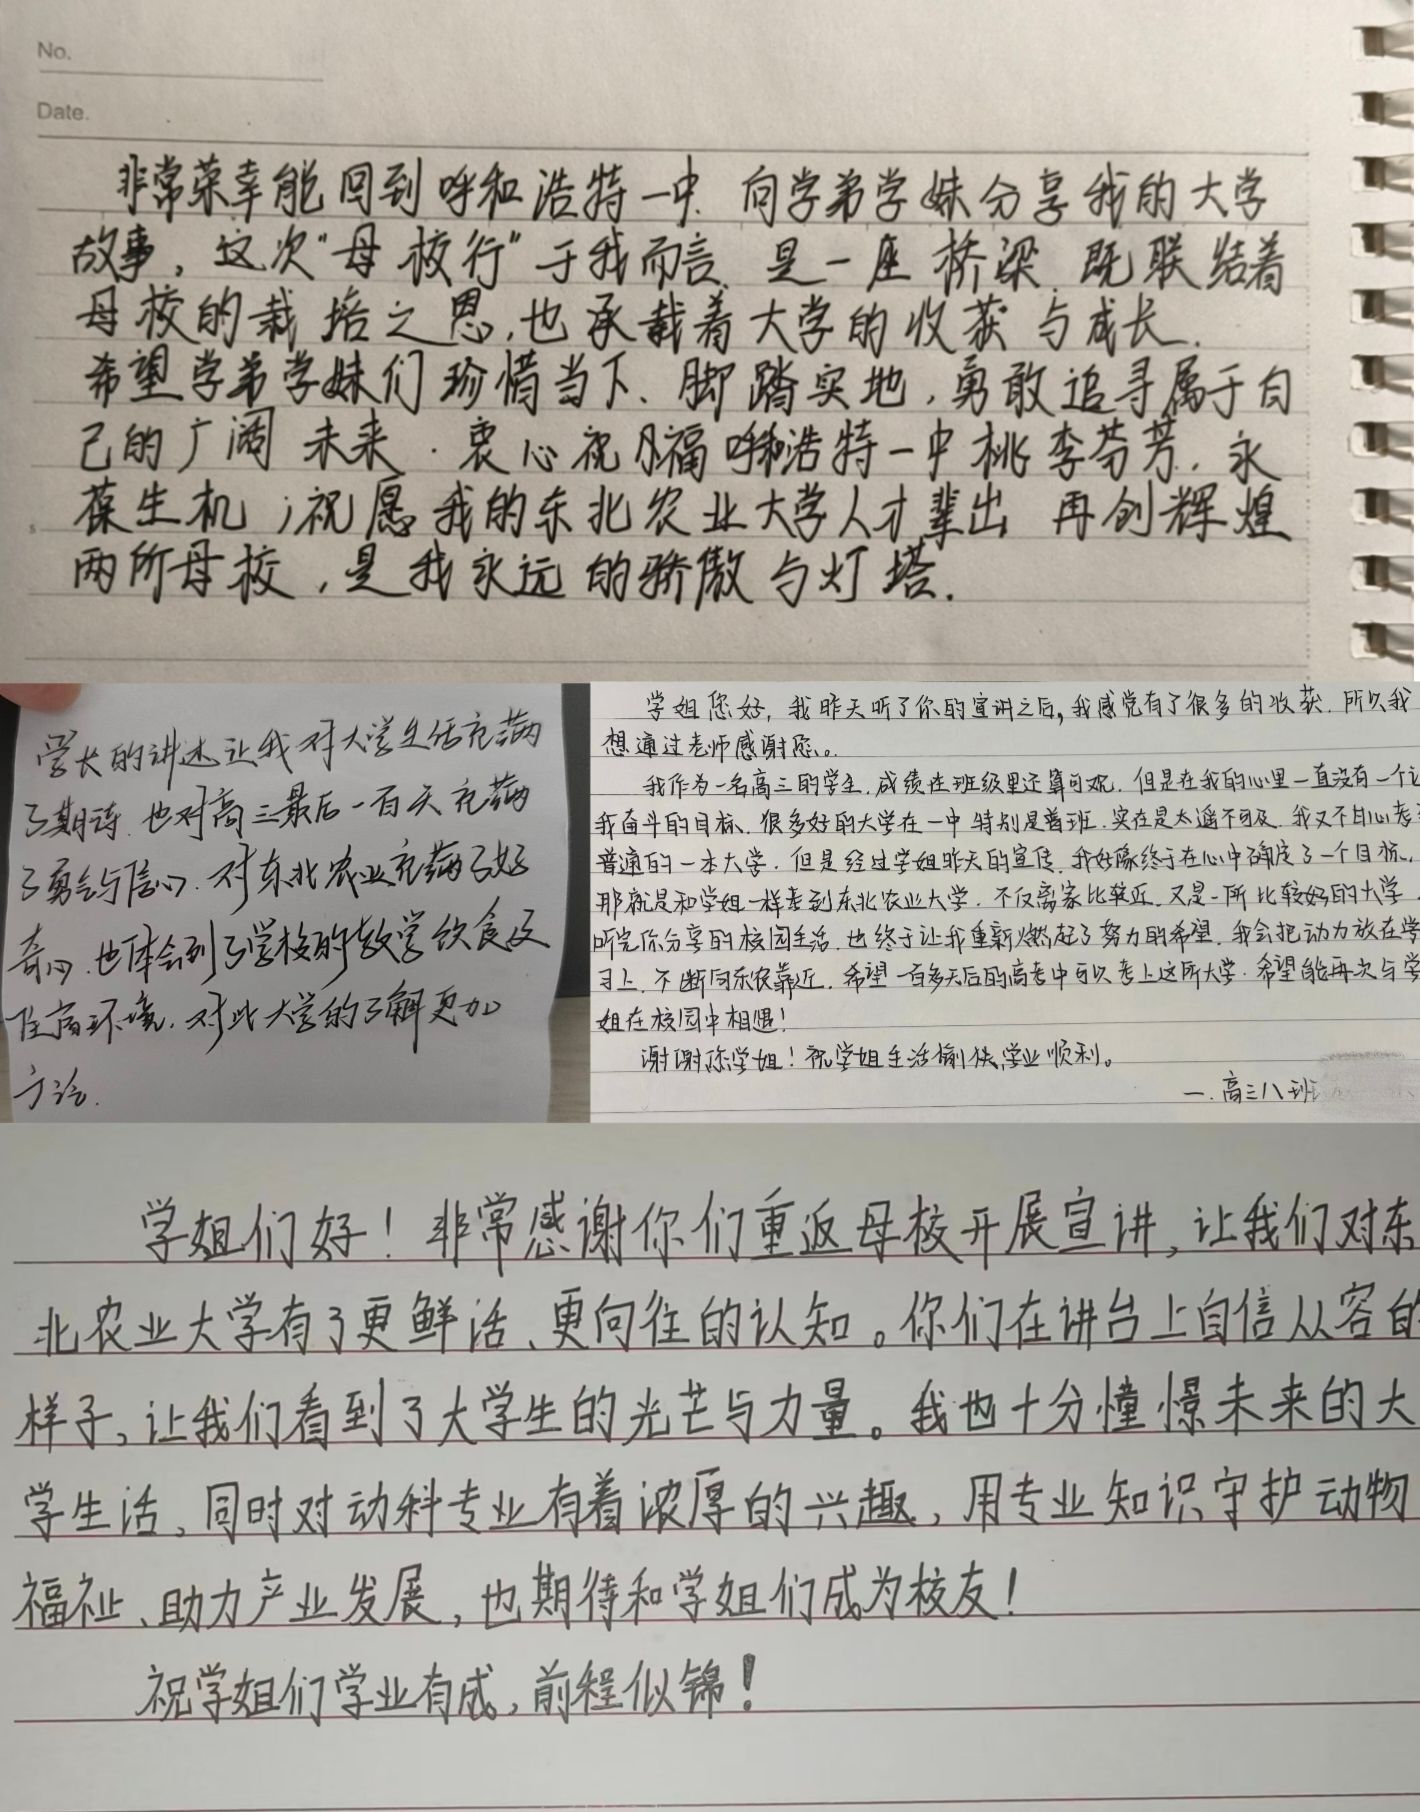 No.
Date.
非常荣幸能回到呼和浩特一中.向学弟学妹分享我的大学
故事，这次“母校行”于我而言、是一座桥梁.既联结着
母校的栽培之恩,也承载着大学的收获与成长.
希望学弟学妹们珍惜当下、脚踏实地，勇敢追寻属于自
己的广阔未来.衷心祝福呼和浩特一中桃李芬芳.永
葆生机;祝愿我的东北农业大学人才辈出 再创辉煌
两所母校,是我永远的骄傲与灯塔.
学长的讲述让我对大学生活充满
了期待.也对高三最后一百天充满
了勇气与信心.对东北农业充满了好
奇心.也体会到了学校的教学饮食及
住宿环境.对此大学的了解更加
学姐您好,我昨天听了你的宣讲之后,我感觉有了很多的收获.所以我
想通过老师感谢您。
我作为一名高三的学生.成绩在班级里还算可观.但是在我的心里一直没有一个让
我奋斗的目标.很多好的大学在一中特别是普班.实在是太遥不可及.我又不甘心考
普通的一本大学.但是经过学姐昨天的宣传.我好像终于在心中确定了一个目标.
那就是和学姐一样考到东北农业大学.不仅离家比较近.又是一所比较好的大学.
听完你分享的校园生活.也终于让我重新燃起了努力的希望.我会把动力放在学
习上.不断向东农靠近.希望一百多天后的高考中可以考上这所大学.希望能再次与学
姐在校园中相遇!
谢谢您学姐!祝学姐生活愉快,学业顺利。
一.高三八班
学姐们好！非常感谢你们重返母校开展宣讲,让我们对东
北农业大学有了更鲜活、更向往的认知。你们在讲台上自信从容的
样子,让我们看到了大学生的光芒与力量。我也十分憧憬未来的大
学生活,同时对动科专业有着浓厚的兴趣,用专业知识守护动物
福祉、助力产业发展,也期待和学姐们成为校友！
祝学姐们学业有成,前程似锦！